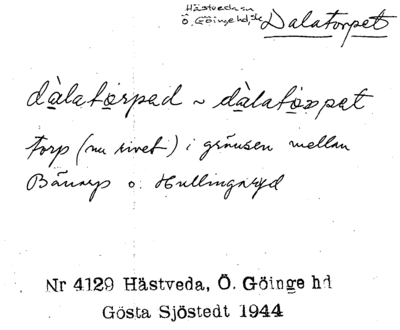 Hästveda sn
Ö. Göinge hd, Sk
Dalatorpet
dàlatorpad ~ dàlatorpet
torp (nu rivet) i gränsen mellan
Bänarp o. Hullingaryd
Nr 4129 Hästveda, Ö. Göinge hd
Gösta Sjöstedt 1944